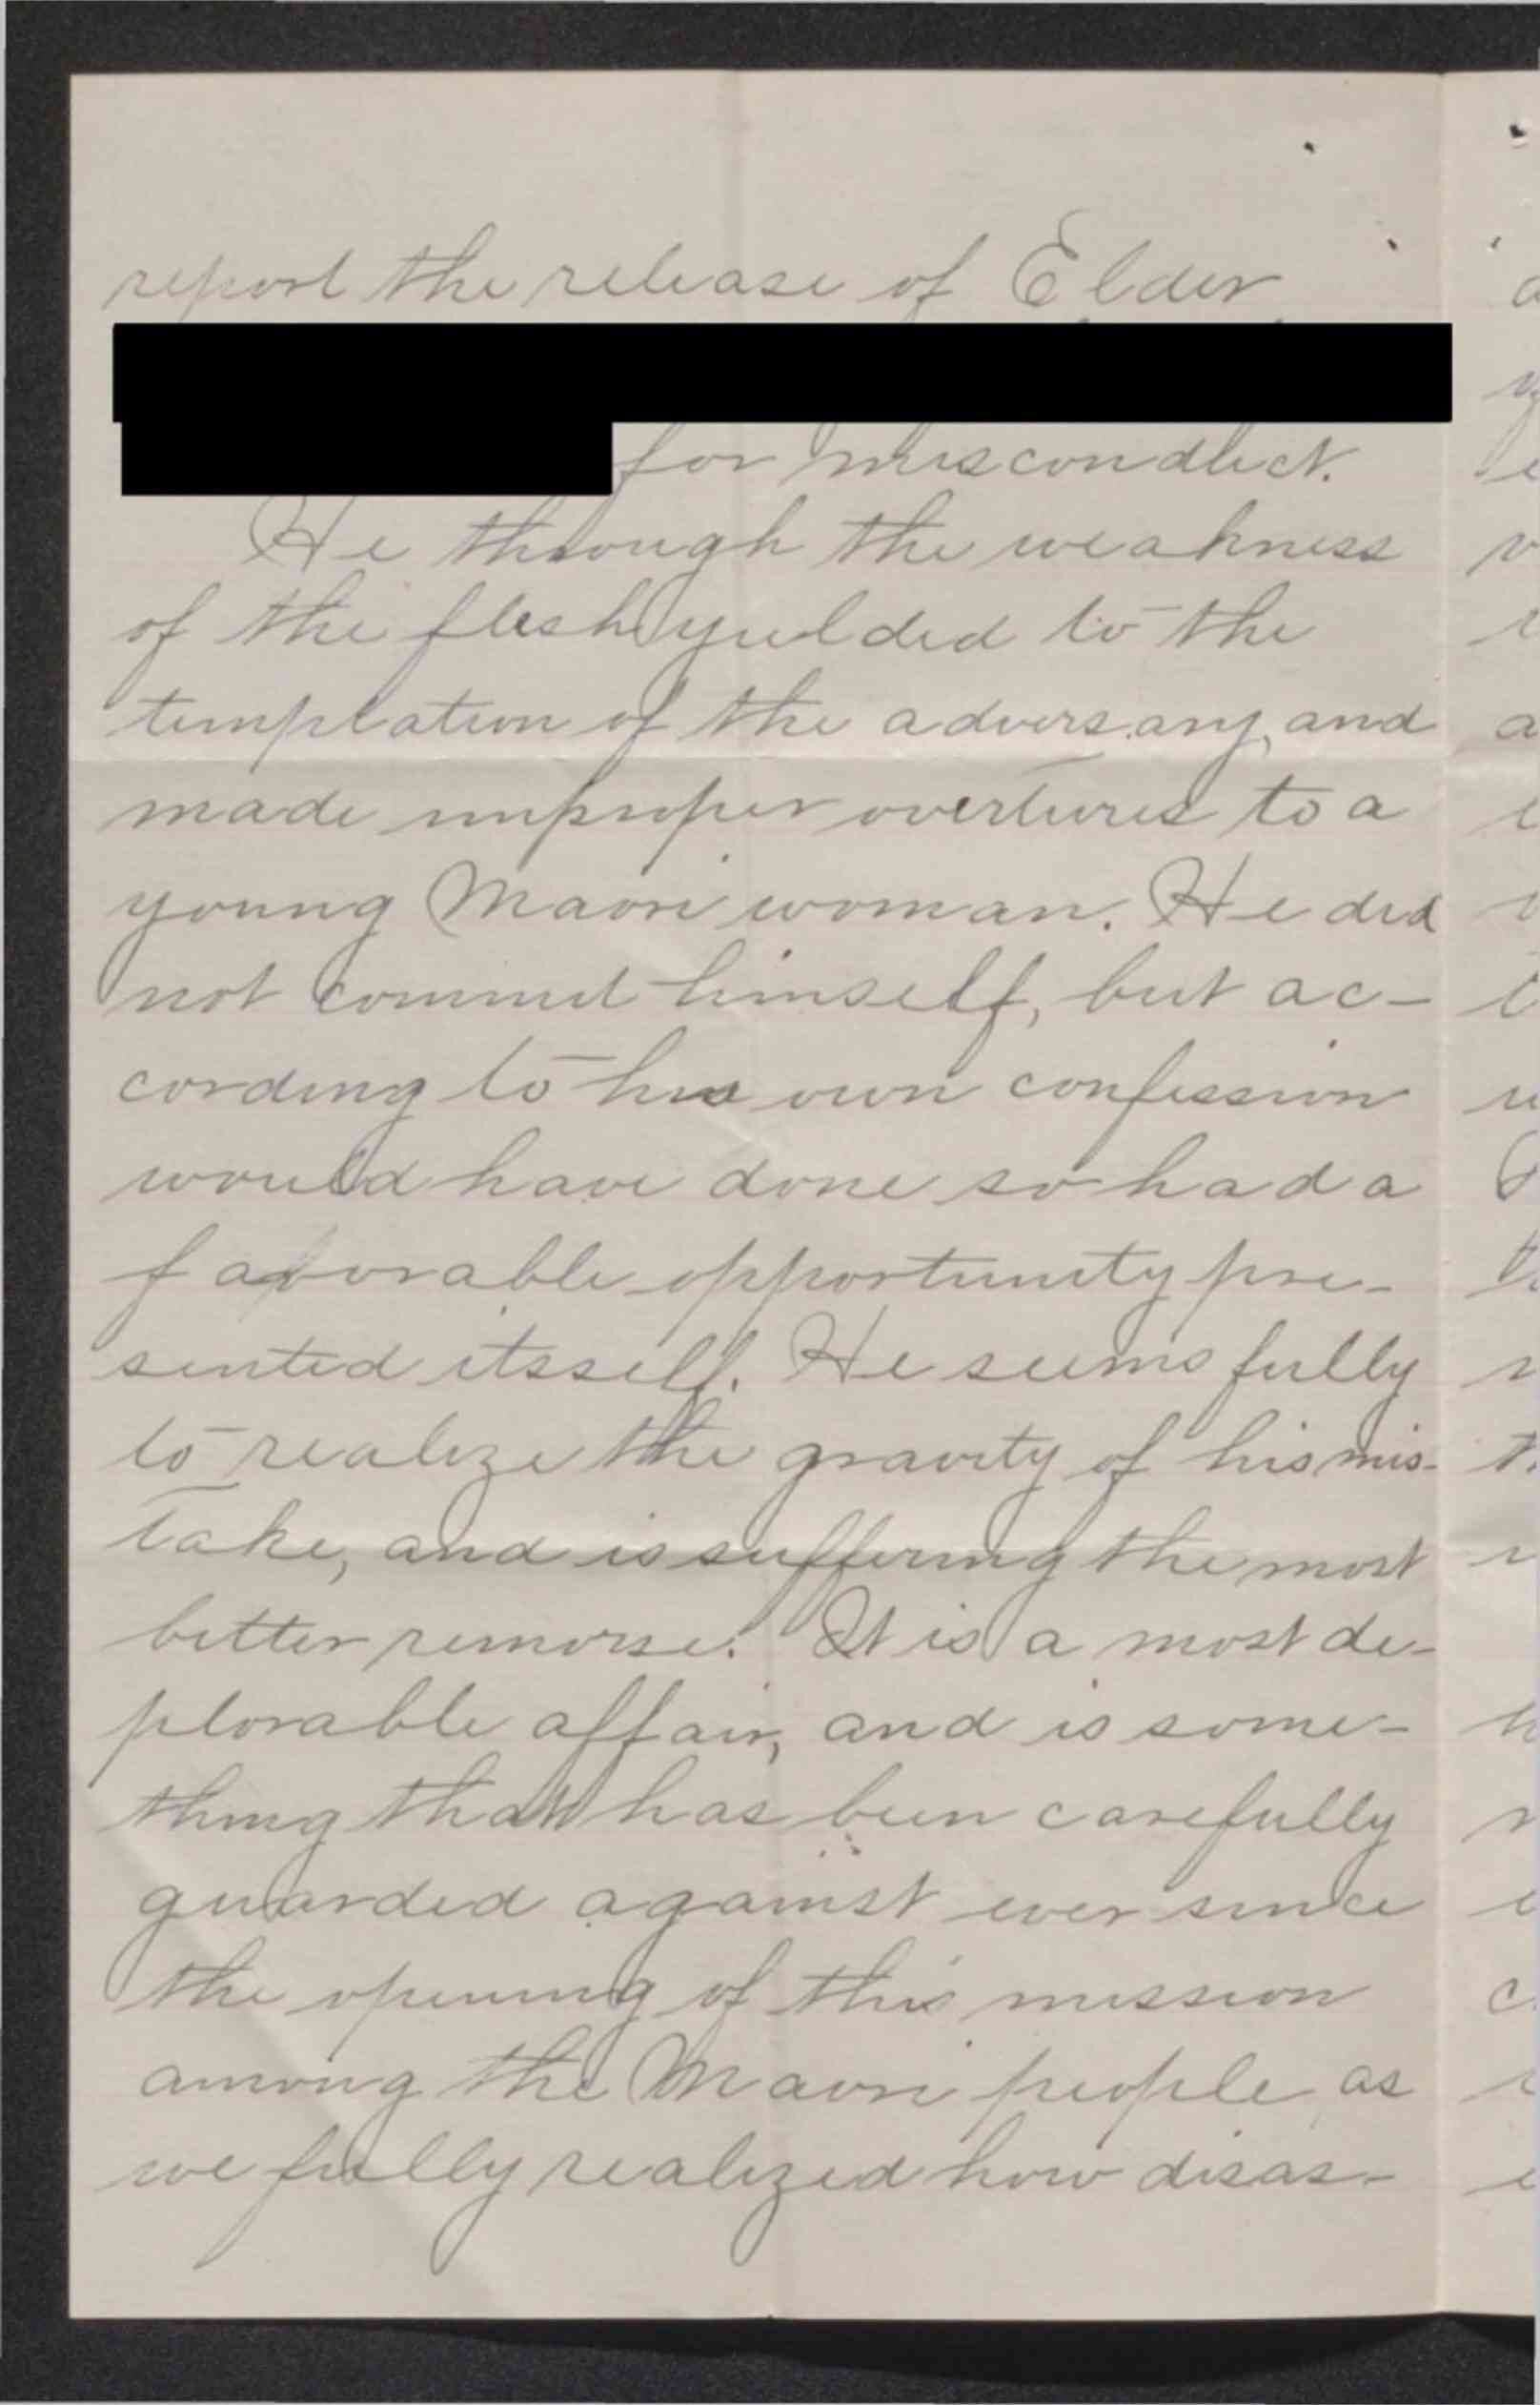 report the release of Elder
for misconduct.
He through the weakness
of the flesh yielded to the
temptation of the adversary, and
made improper overtures to a
young Maori woman. He did
not commit himself, but ac-
cording to his own confession
would have done so had a
favorable opportunity pre-
sented itsself. He seems fully
to realize the gravity of his mis-
take, and is suffering the most
bitter remorse. It is a most de-
plorable affair, and is some-
thing that has been carefully
guarded against ever since
the opening of this mission
among the Maori people as
we fully realized how disas-